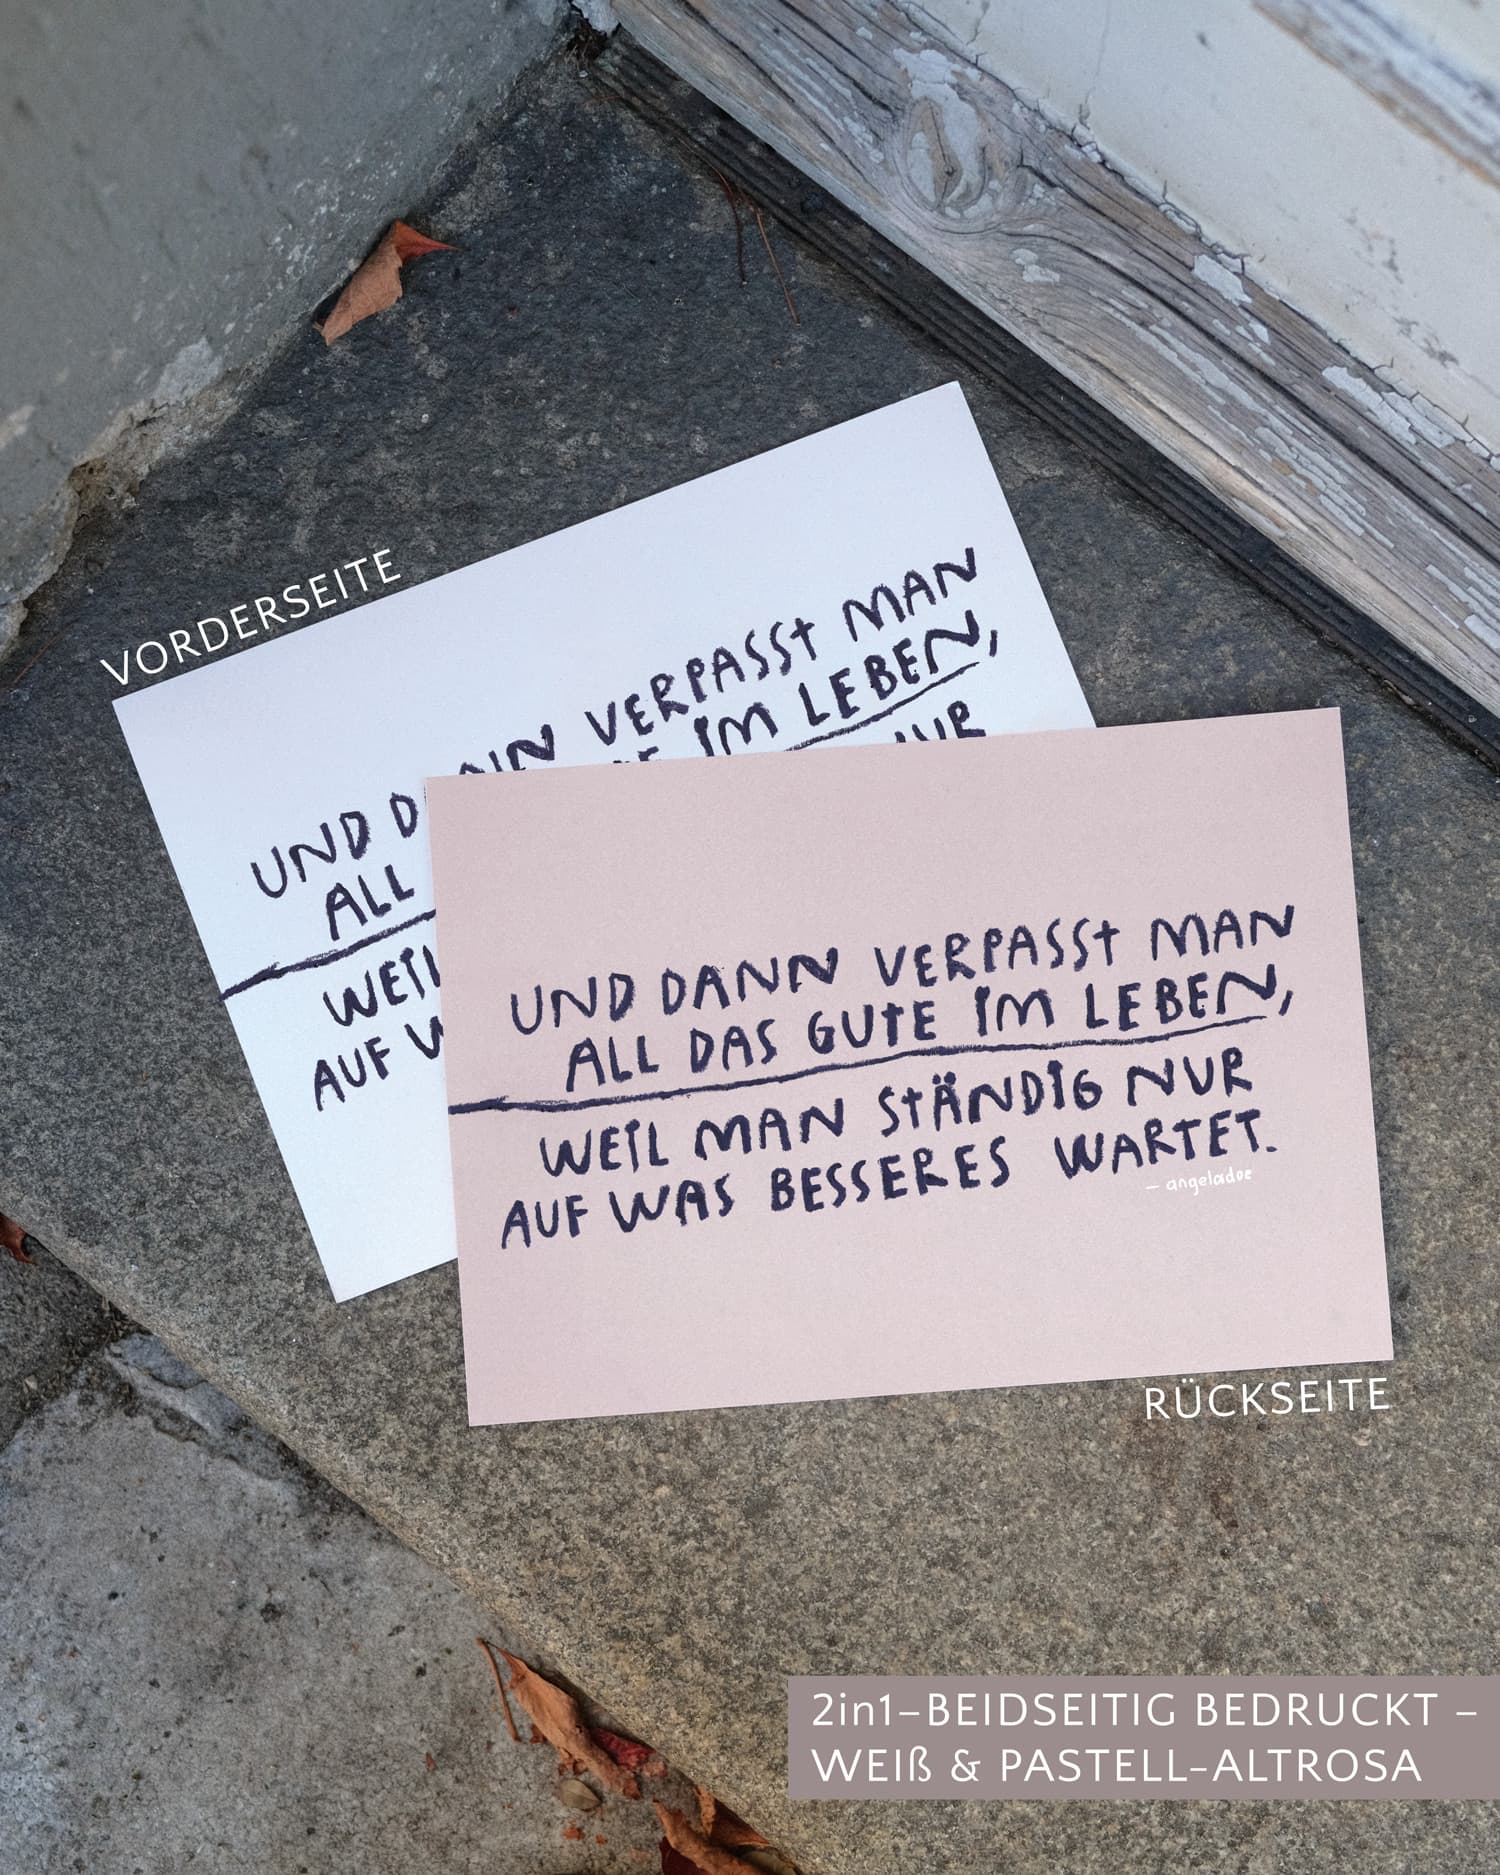 VORDERSEITE
UND D NN VERPASST MAN
ALL IM LEBEN,
WEIL NUR
AUF W
UND DANN VERPASST MAN
ALL DAS GUTE IM LEBEN,
WEIL MAN STÄNDIG NUR
AUF WAS BESSERES WARTET.
– angeladoe
RÜCKSEITE
2in1–BEIDSEITIG BEDRUCKT –
WEIß & PASTELL-ALTROSA